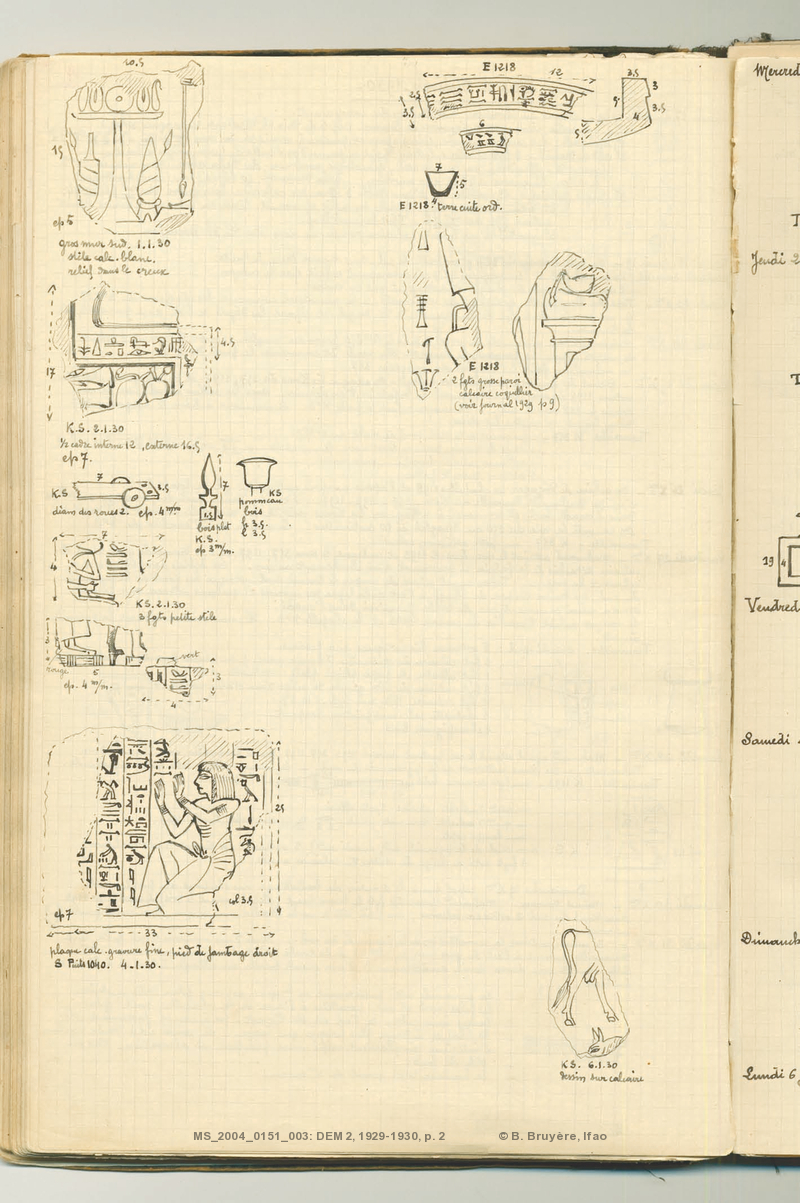 10.5
15
ep 5
gros mur sud. 1.1.30
stèle calc. blanc.
relief dans le creux
4.5
17
K.S. 2.1.30
½ cadre interne 12, externe 16.5
ep 7.
7
3.5
K.S
diam des roues 2. ep. 4 m/m
7
1.5
bois plat
K.S.
ep 3 m/m.
KS
pommeau
bois
h 3.5.
l 3.5
7
4
K.S. 2.1.30
3 fgts petite stèle
vert
rouge
3
6
ep. 4 m/m.
3
4
25
col 3.5
ep 7
33
plaque calc. gravure fine, pied de jambage droit
S Puits 1040. 4.1.30.
E 1218
12
2.5
3.5
3.5
3
9
3.5
4
5
6
7
5
4
E 1218 terre cuite ord.
E 1218
2 fgts grosse paroi
calcaire coquillier
(voir journal 1929 p 9)
KS. 6.1.30
dessin sur calcaire
Mercred
T
Jeudi 2
T
19
4
Vendred
Samedi
Dimanch
Lundi 6
MS_2004_0151_003: DEM 2, 1929-1930, p. 2
© B. Bruyère, Ifao